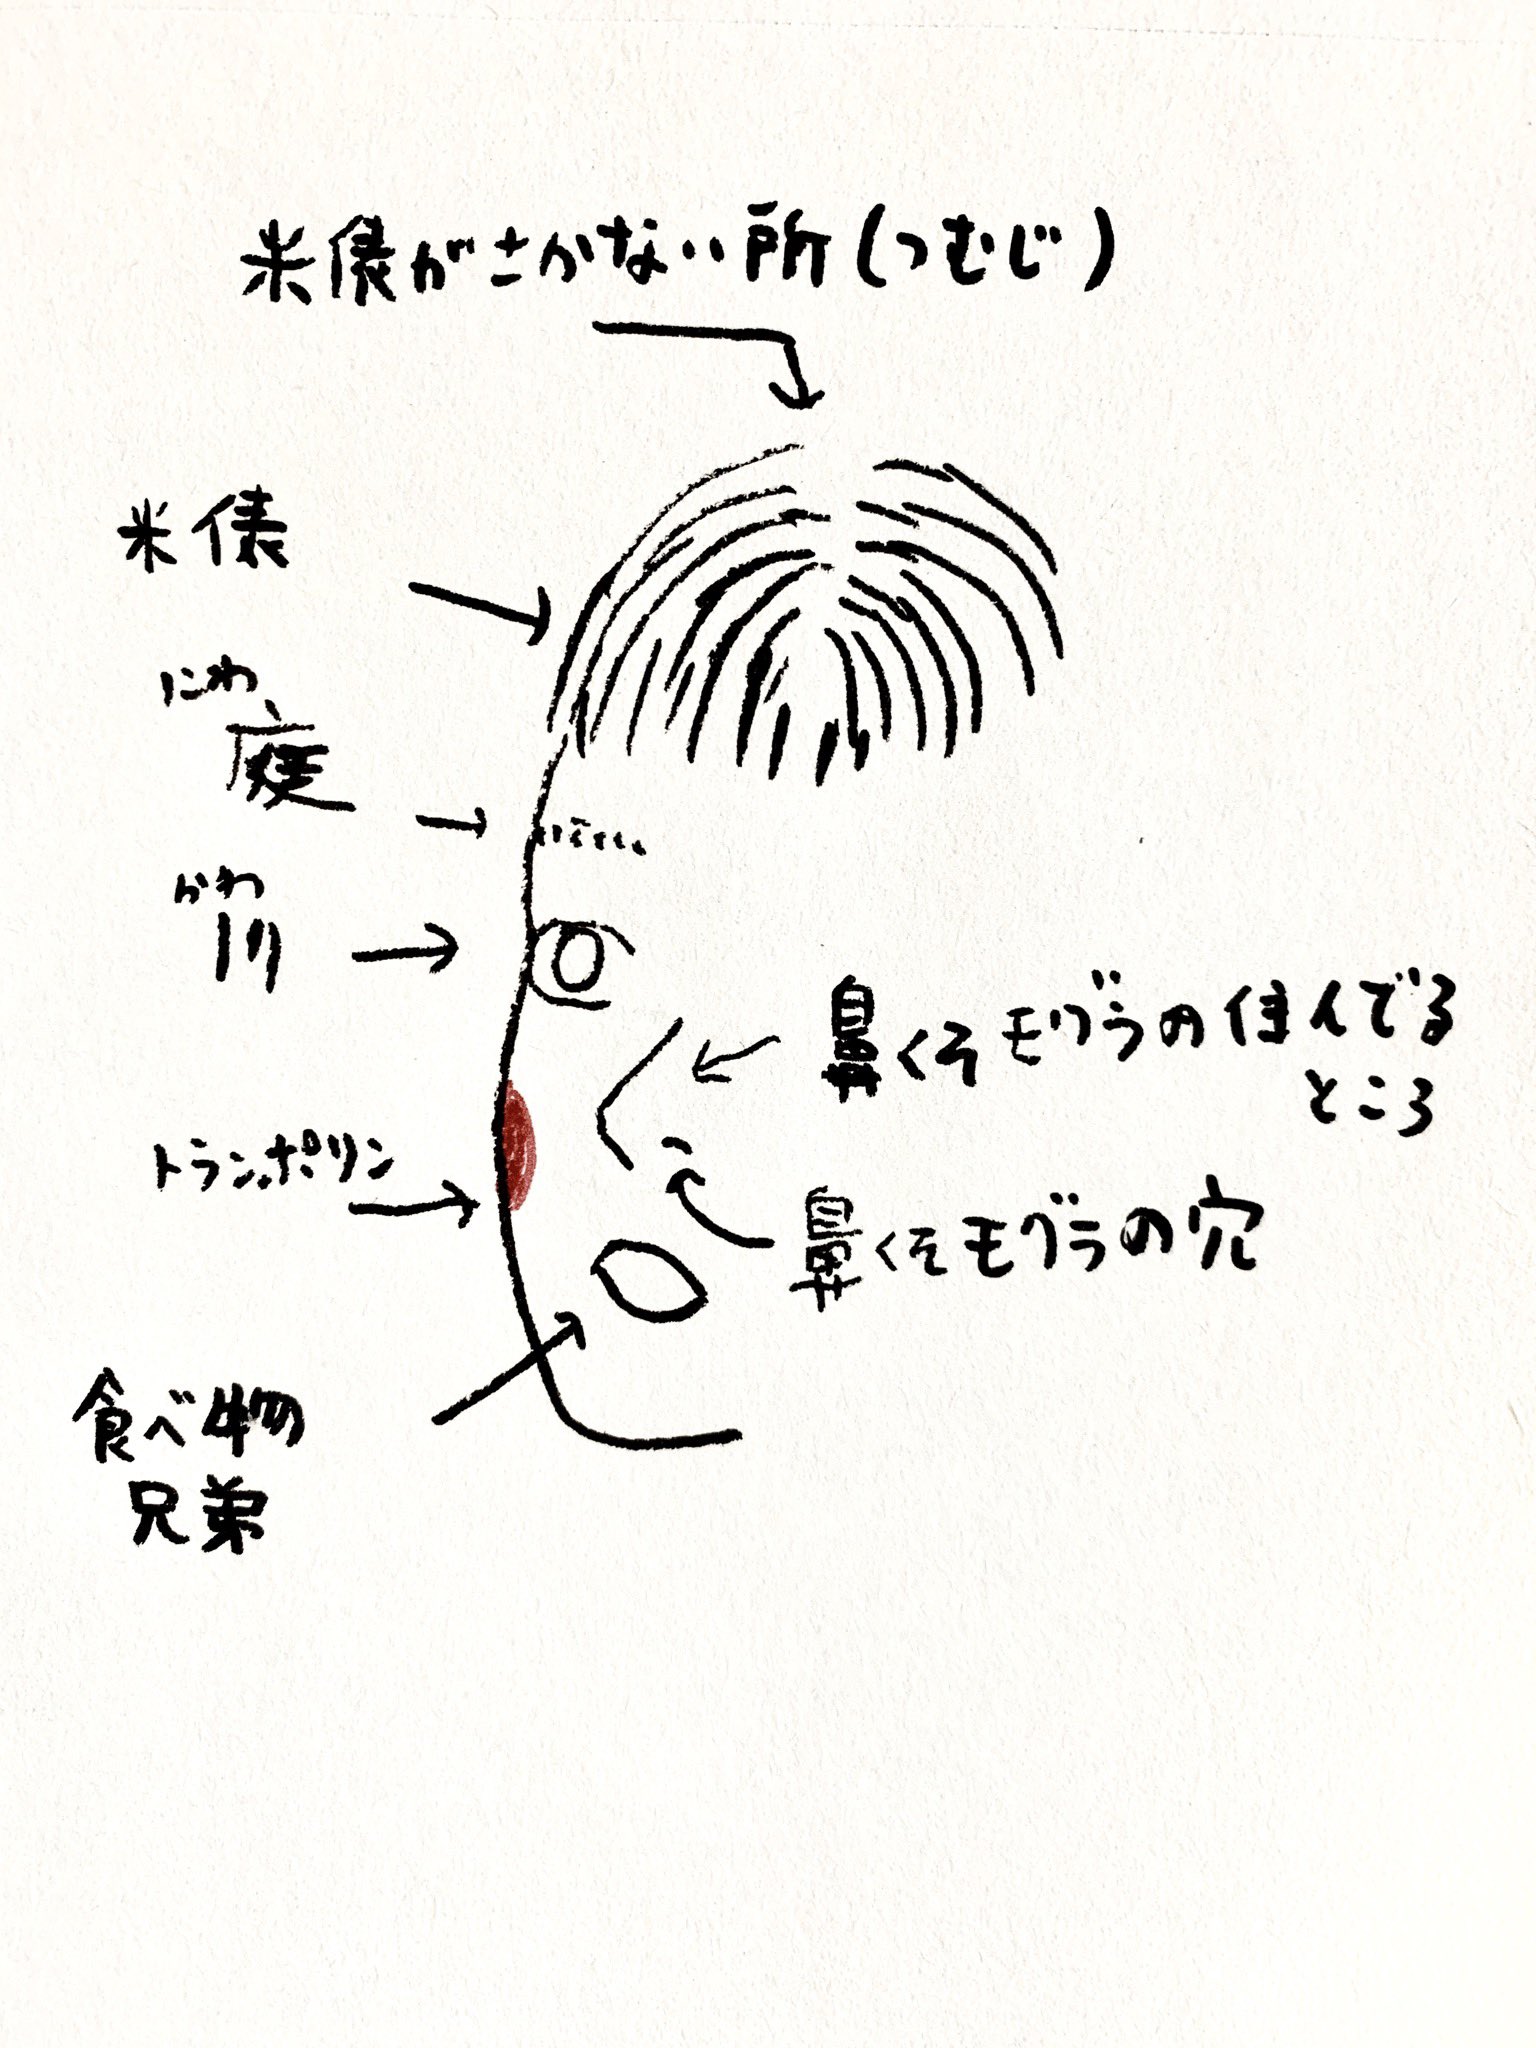 米俵がさかない所(つむじ)
米俵
にわ
庭
かわ
川
鼻くそモグラの住んでる
ところ
トランポリン
鼻くそモグラの穴
食べ物
兄弟